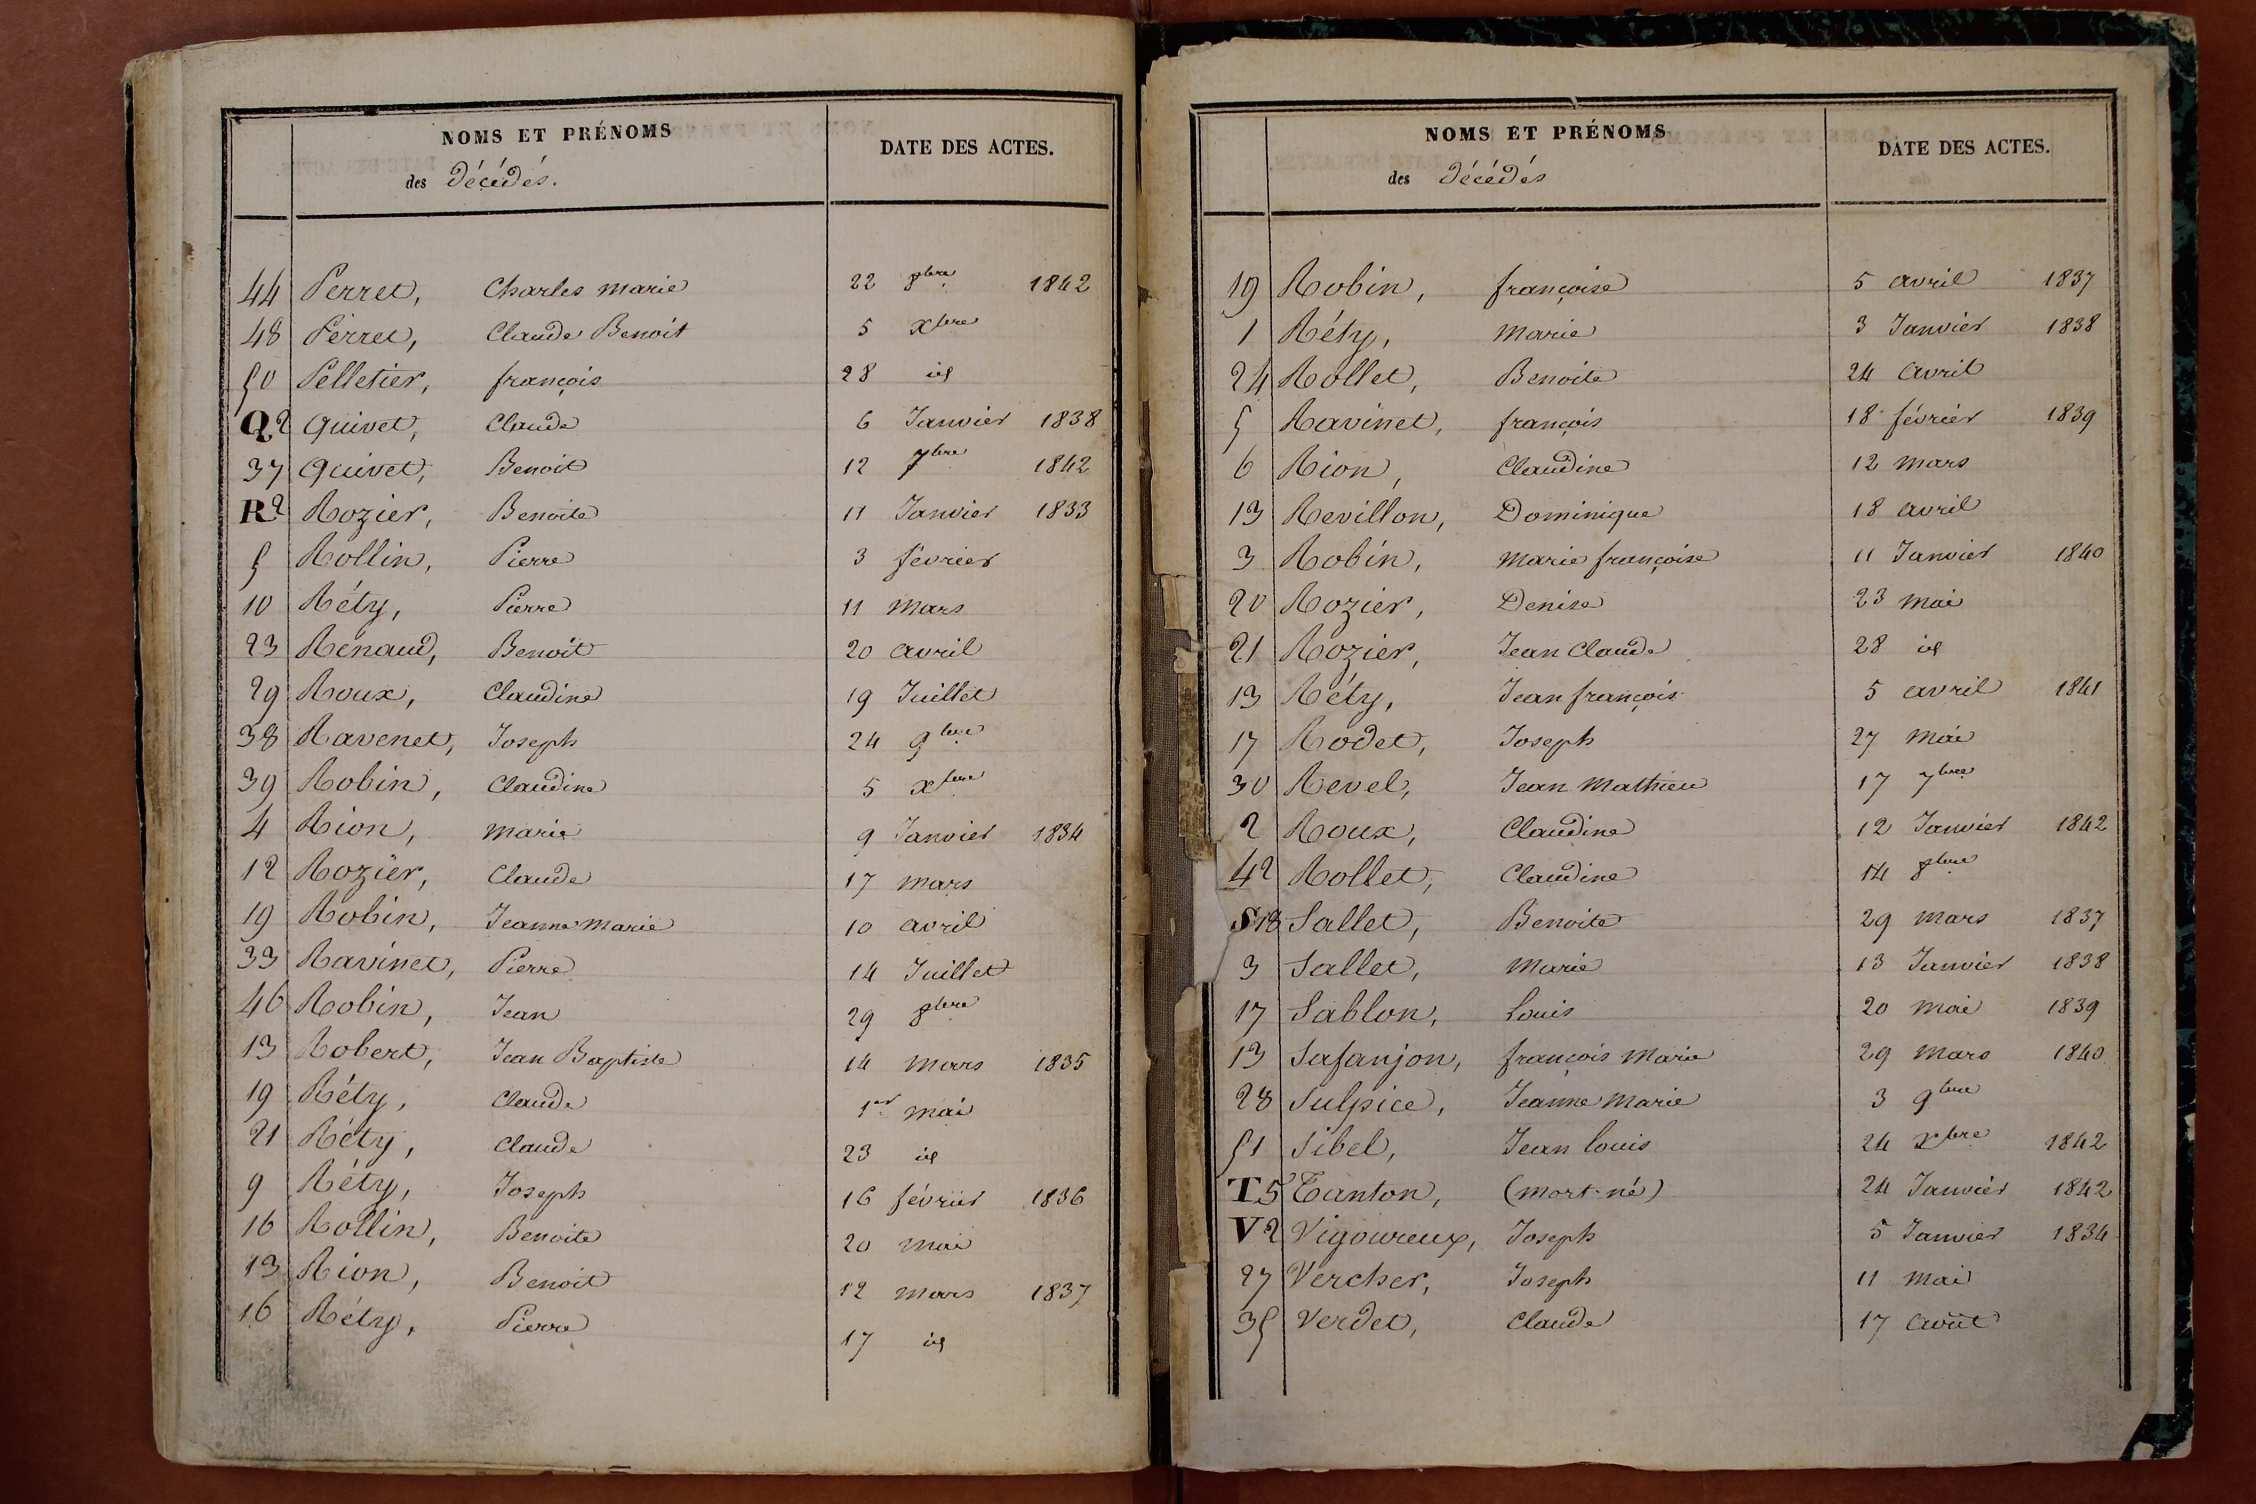 NOMS ET PRÉNOMS
DATE DES ACTES.
des Décédés.
44 Perret, Charles Marie 22 8bre 1842
48 Perret, Claude Benoit 5 Xbre
50 Pelletier, françois 28 id
Q 2 Quivet, Claude 6 Janvier 1838
37 Quivet, Benoit 12 7bre 1842
R 2 Rozier, Benoite 11 Janvier 1833
5 Rollin, Pierre 3 février
10 Réty, Pierre 11 mars
23 Rénaud, Benoît 20 avril
29 Roux, Claudine 19 Juillet
38 Ravenet, Joseph 24 9bre
39 Robin, Claudine 5 Xbre
4 Rion, Marie 9 Janvier 1834
12 Rozier, Claude 17 mars
19 Robin, Jeanne Marie 10 avril
33 Ravinet, Pierre 14 Juillet
46 Robin, Jean 29 8bre
13 Robert, Jean Baptiste 14 mars 1835
19 Réty, Claude 1er mai
21 Réty, Claude 23 id
9 Réty, Joseph 16 février 1836
16 Rollin, Benoite 20 mai
13 Rion, Benoit 12 mars 1837
16 Réty, Pierre 17 id
NOMS ET PRÉNOMS
DATE DES ACTES.
des Décédés
19 Robin, françoise 5 avril 1837
1 Réty, Marie 3 Janvier 1838
24 Rollet, Benoite 24 avril
5 Ravinet, françois 18 février 1839
6 Rion, Claudine 12 mars
13 Revillon, Dominique 18 avril
3 Robin, Marie françoise 11 Janvier 1840
20 Rozier, Denise 23 mai
21 Rozier, Jean Claude 28 id
13 Réty, Jean françois 5 avril 1841
17 Rodet, Joseph 27 mai
30 Revel, Jean Mathieu 17 7bre
2 Roux, Claudine 12 Janvier 1842
42 Rollet, Claudine 14 8bre
S 18 Sallet, Benoite 29 mars 1837
3 Sallet, Marie 13 Janvier 1838
17 Sablon, Louis 20 mai 1839
13 Safanjon, françois Marie 29 mars 1840
28 Sulpice, Jeanne Marie 3 9bre
51 Sibel, Jean Louis 24 Xbre 1842
T 5 Tanton, (mort-né) 24 Janvier 1842
V 2 Vigoureux, Joseph 5 Janvier 1834
27 Vercher, Joseph 11 mai
35 Verdet, Claude 17 août